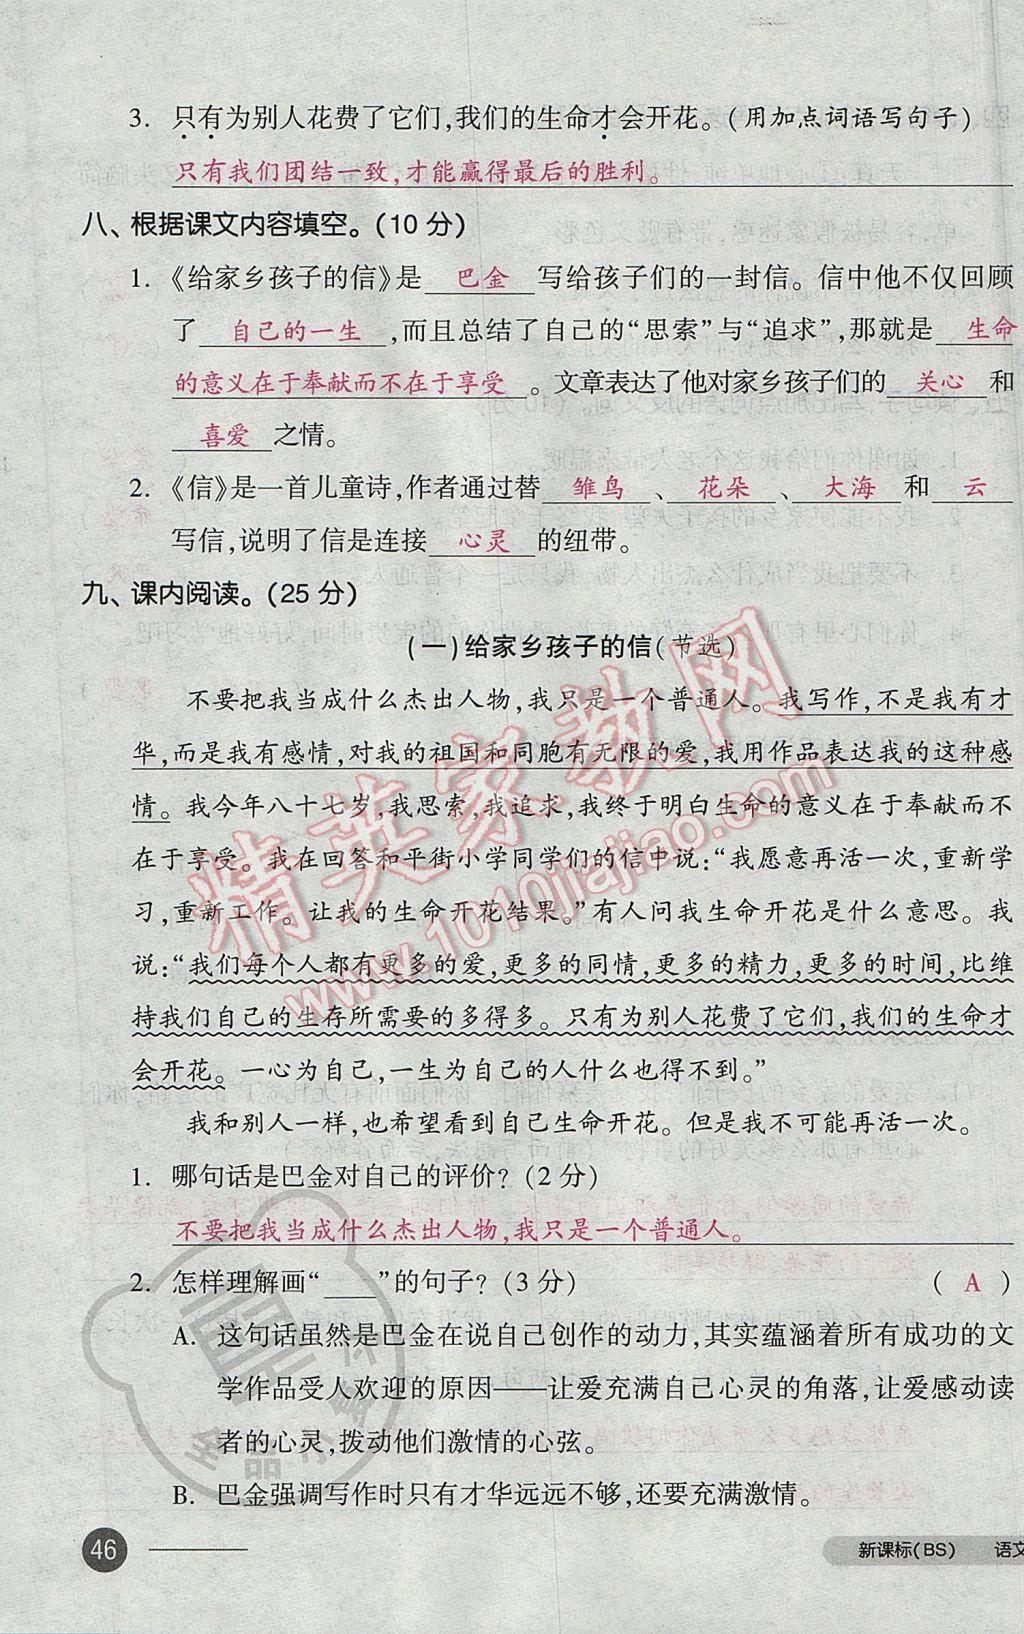 3. 只有为别人花费了它们,我们的生命才会开花。(用加点词语写句子)
只有我们团结一致,才能赢得最后的胜利。
八、根据课文内容填空。(10分)
1. 《给家乡孩子的信》是 巴金 写给孩子们的一封信。信中他不仅回顾
了 自己的一生 ,而且总结了自己的“思索”与“追求”,那就是 生命
的意义在于奉献而不在于享受 。文章表达了他对家乡孩子们的 关心 和
喜爱 之情。
2. 《信》是一首儿童诗,作者通过替 雏鸟 、 花朵 、 大海 和 云
写信,说明了信是连接 心灵 的纽带。
九、课内阅读。(25分)
(一)给家乡孩子的信(节选)
不要把我当成什么杰出人物,我只是一个普通人。我写作,不是我有才
华,而是我有感情,对我的祖国和同胞有无限的爱,我用作品表达我的这种感
情。我今年八十七岁,我思索,我追求,我终于明白生命的意义在于奉献而不
在于享受。我在回答和平街小学同学们的信中说:“我愿意再活一次,重新学
习,重新工作。让我的生命开花结果。”有人问我生命开花是什么意思。我
说:“我们每个人都有更多的爱,更多的同情,更多的精力,更多的时间,比维
持我们自己的生存所需要的多得多。只有为别人花费了它们,我们的生命才
会开花。一心为自己,一生为自己的人什么也得不到。”
我和别人一样,也希望看到自己生命开花。但是我不可能再活一次。
1. 哪句话是巴金对自己的评价?(2分)
不要把我当成什么杰出人物,我只是一个普通人。
2. 怎样理解画“____”的句子?(3分) ( A )
A. 这句话虽然是巴金在说自己创作的动力,其实蕴涵着所有成功的文
学作品受人欢迎的原因——让爱充满自己心灵的角落,让爱感动读
者的心灵,拨动他们激情的心弦。
B. 巴金强调写作时只有才华远远不够,还要充满激情。
46
新课标(BS) 语文
精英家教网
www.1010jiajiao.com
全品